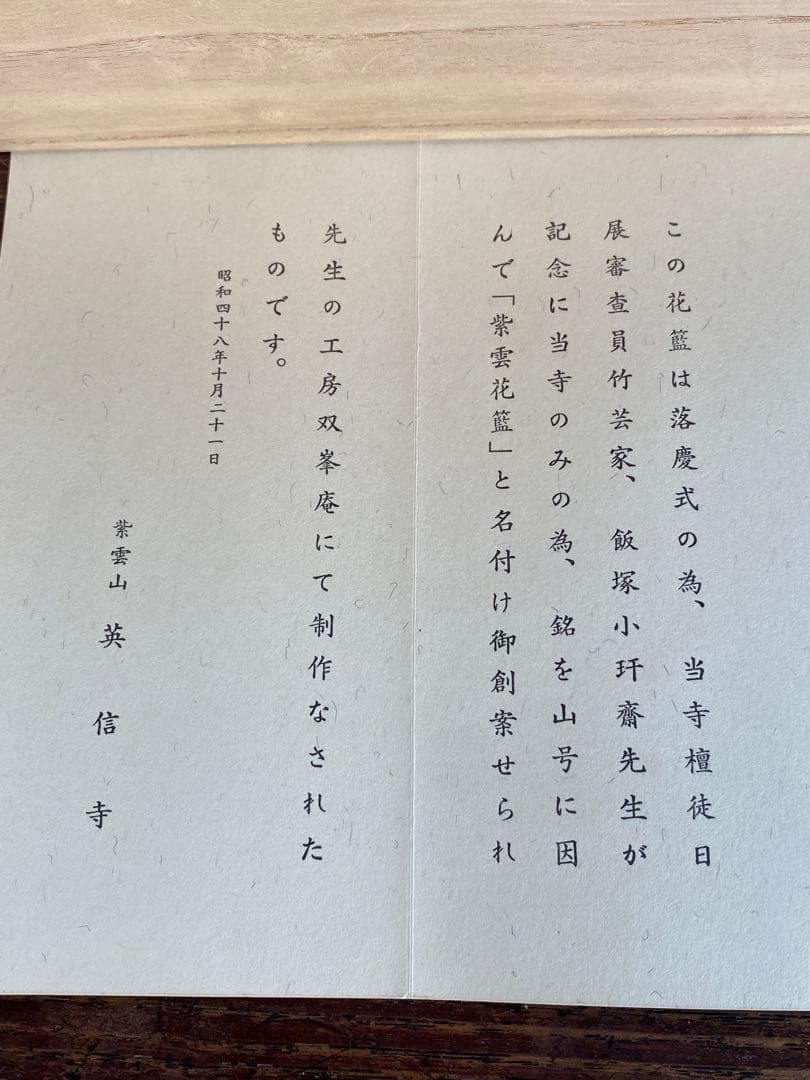 この花籃は落慶式の為、当寺檀徒日
展審査員竹芸家、飯塚小玕齋先生が
記念に当寺のみの為、銘を山号に因
んで「紫雲花籃」と名付け御創案せられ
先生の工房双峯庵にて制作なされた
ものです。
昭和四十八年十月二十一日
紫雲山 英信寺